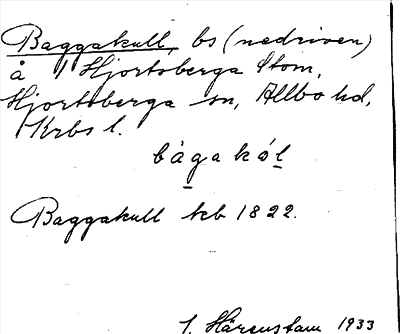 Baggakull, bs (nedriven)
å 1 Hjortsberga Stom,
Hjortsberga sn, Allbo hd,
Krbs l.
bágakó̀l
Baggakull kb 1822.
I. Härenstam 1933